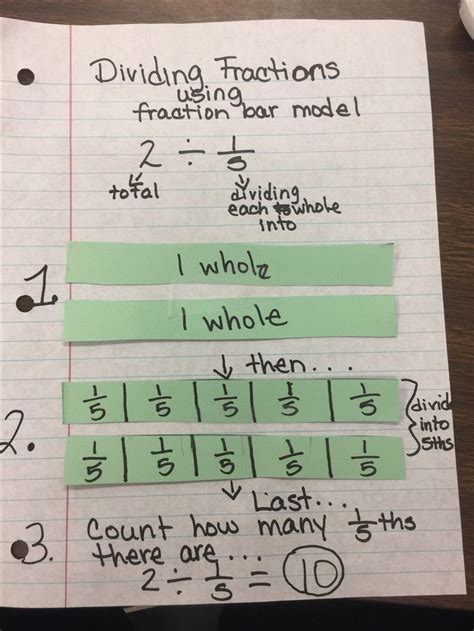 Dividing Fractions
using
fraction bar model
2 ÷ 1/5
total
dividing
each whole
into
1.
1 whole
1 whole
↓ then...
2.
1/5 | 1/5 | 1/5 | 1/5 | 1/5
1/5 | 1/5 | 1/5 | 1/5 | 1/5
divid
into
5ths
↓ Last...
3. Count how many 1/5ths
there are...
2 ÷ 1/5 = 10